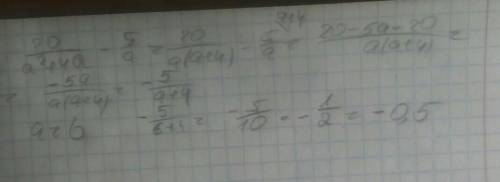 20/(a²+4a) - 5/a = 20/(a(a+4)) - 5/a = (20-5a-20)/(a(a+4)) =
= -5a/(a(a+4)) = -5/(a+4)
a=6 -5/(6+4) = -5/10 = -1/2 = -0,5